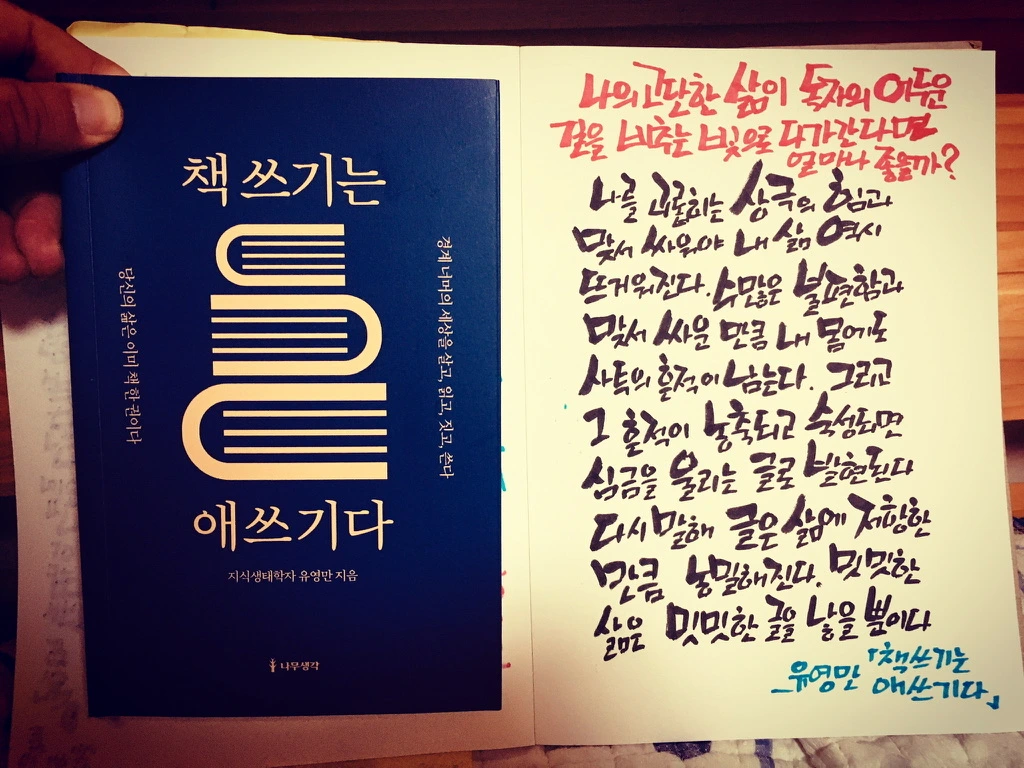 책 쓰기는
애쓰기다
경계 너머의 세상을 살고, 읽고, 짓고, 쓴다
당신의 삶은 이미 책 한 권이다
지식생태학자 유영만 지음
나무생각
나의 고단한 삶이 독자의 어두운
길을 비추는 빛으로 다가간다면
얼마나 좋을까?
나를 괴롭히는 상극의 힘과
맞서 싸워야 내 삶 역시
뜨거워진다. 수많은 불편함과
맞서 싸운 만큼 내 몸에도
사투의 흔적이 남는다. 그리고
그 흔적이 농축되고 숙성되면
심금을 울리는 글로 발현된다
다시 말해 글은 삶에 저항한
만큼 농밀해진다. 밋밋한
삶은 밋밋한 글을 낳을 뿐이다
_유영만 「책쓰기는
애쓰기다」